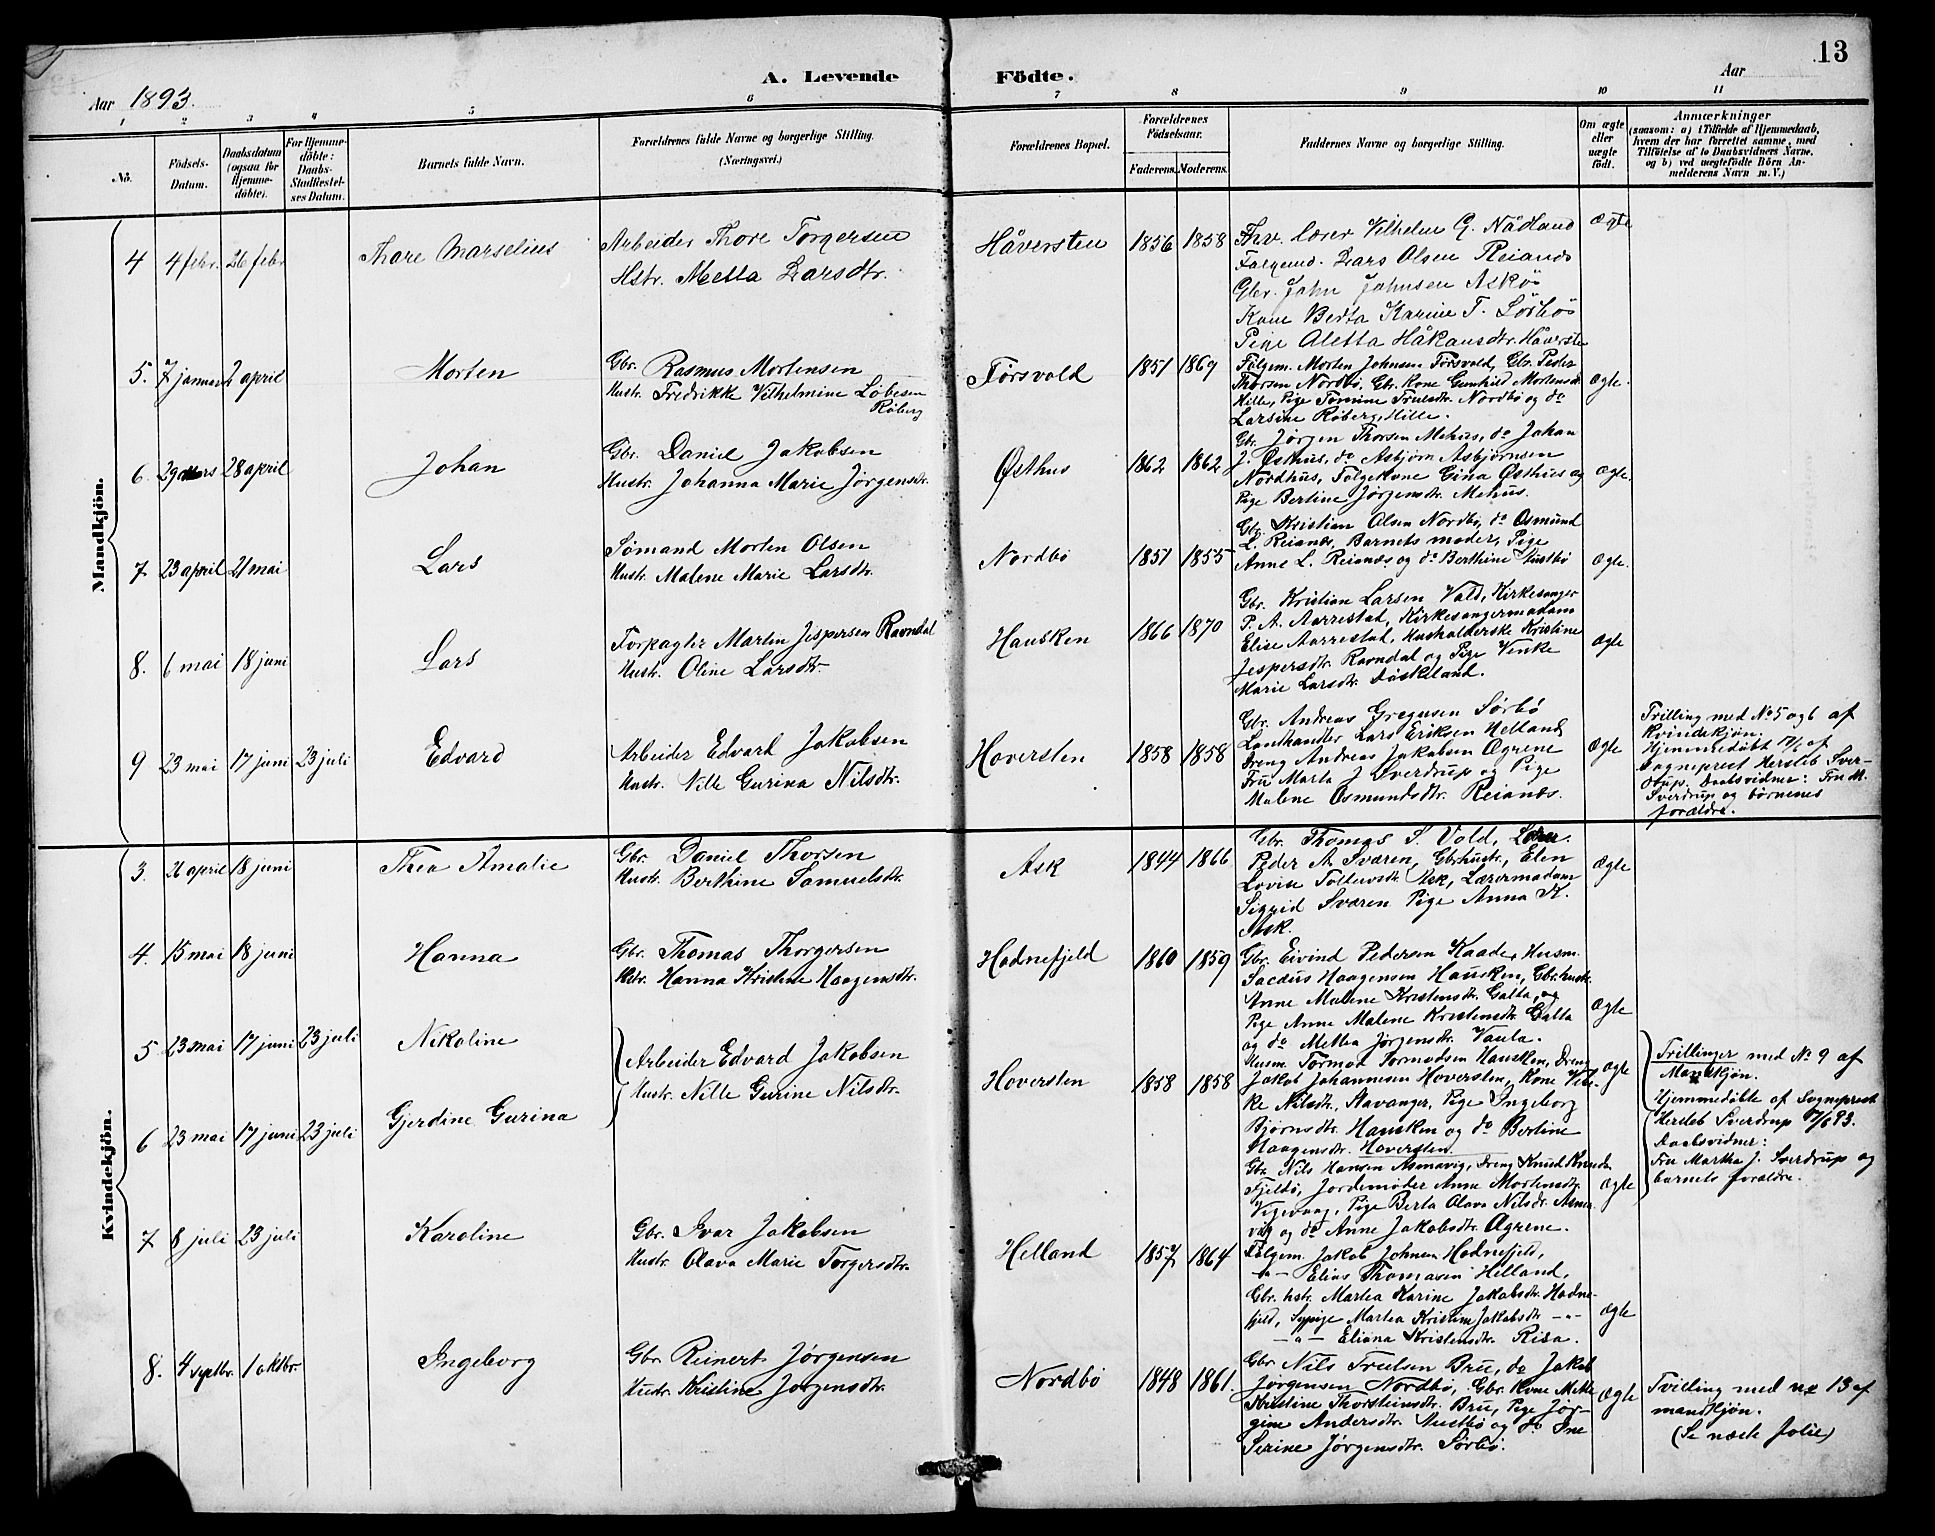 13
A. Levende Födte.
Aar 1893.
Aar
1 2 3 4 5 6 7 8 9 10 11
No.
Födsels-
Datum.
Daabsdatum
(ogsaa for
Hjemme-
döbte).
For Hjemme-
döbte:
Daabs-
Stadfæstel-
ses Datum.
Barnets fulde Navn.
Forældrenes fulde Navne og borgerlige Stilling.
(Næringsvei.)
Forældrenes Bopæl.
Forældrenes
Födselsaar.
Faderens. Moderens.
Faddernes Navne og borgerlige Stilling.
Om ægte
eller
uægte
født.
Anmærkninger
(saasom: a) i Tilfælde af Hjemmedaab,
hvem der har forrettet samme, med
Tilföielse af to Daabsvidners Navne,
og b) ved uægtefödte Börn An-
melderens Navn m. V.)
Mandkjön.
4 4 febr. 26 febr Thore Marselius
Arbeider Thore Torgersen
Hstr. Metta Larsdtr.
Håversten 1856 1858
Fhv. Lærer Vilhelm G. Nådland
Følgemd. Lars Olsen Reianes
Gbr. John Johnsen Askö
Kone Berta Karine T. Sörbö
Pige Aletta Håkansdtr. Håverste
Ægte
5. 7 januar 2 april Morten
Gbr. Rasmus Mortensen
Hustr. Fredrikke Vilhelmine Löbesen
Røberg
Førsvold 1851 1869
Følgem. Morten Johnsen Førsvold, Gbr. Peder
Thorsen Nordbö, Gbr. Kone Gunhild Mortensdtr
Hille, Pige Tomine Trulsdtr. Nordbö og do
Larsine Røberg, Hille.
Ægte.
6. 29 Mars 28 april Johan
Gbr. Daniel Jakobsen
Hustr. Johanna Marie Jörgensdtr.
Østhus 1862 1862
Gbr. Jørgen Thorsen Mehus, do Johan
J. Østhus, do Asbjörn Asbjörnsen
Nordhus, Følgekone Gina Østhus og
Pige Bertine Jørgensdtr. Mehus.
Ægte.
7 23 april 21 mai Lars
Sømand Morten Olsen
Hustr. Malene Marie Larsdtr.
Nordbö 1851 1855
Gbr. Kristian Olsen Nordbö, do Osmund
L. Reianes, Barnets moder, Pige
Anne L. Reianes og do Berthine Austbö
Ægte.
8. 6 mai 18 juni Lars
Forpagter Martin Jespersen Ravndal
Hustr. Oline Larsdtr.
Hausken 1866 1870
Gbr. Kristian Larsen Vold, Kirkesanger
P. A. Aarrestad, Kirkesangermadam
Elise Aarrestad, Husholderske Kristine
Jespersdtr. Ravndal og Pige Venke
Marie Larsdtr. Døskeland.
Ægte
9 23 mai 17 juni 23 juli Edvard
Arbeider Edvard Jakobsen
Hustr. Nille Gurina Nilsdtr.
Hoversten 1858 1858
Gbr. Andreas Gregusen Sørbö
Landhandler Lars Eriksen Helland
Dreng Andreas Jakobsen Ogrene
Fru Marta J. Sverdrup og Pige
Malene Osmundsdtr. Reianes.
Ægte
Trilling med No 5 og 6 af
Kvindekjön.
Hjemmedøbt 17/6 af
Sogneprest Hersleb Sver-
drup. Daabsvidner: Fru M.
Sverdrup og børnenes
forældre.
Kvindekjön.
3. 21 april 18 juni Thea Amalie
Gbr. Daniel Thorsen
Hustr. Berthine Samuelsdtr.
Ask 1844 1866
Gbr. Thomas S. Vold, Lærer
Peder A. Sværen, Gbrhustr. Elen
Lovise Tollevsdtr. Ask, Lærermadam
Sigrid Sværen Pige Anna K.
Ask.
Ægte
4. 15 mai 18 juni Hanna
Gbr. Thomas Thorgersen
Hstr. Hanna Kristine Haagensdtr.
Hodnefjeld 1860 1859
Gbr. Eivind Pedersen Kaade, Husm.
Sacæus Haagensen Hausken, Gbr. hustr.
Anne Malene Kristensdtr. Galta, og
Pige Anne Malene Kristensdtr Galta
og do Mettea Jørgensdtr. Vaula.
Ægte
5 23 mai 17 juni 23 juli Nikoline
6 23 mai 17 juni 23 juli Gjerdine Gurina
Arbeider Edvard Jakobsen
Hustr. Nille Gurine Nilsdtr.
Hoversten 1858 1858
Husm. Tormod Tormodsen Hausken, Dreng
Jakob Johannesen Hoversten, Kone Vibe-
ke Nilsdtr. Stavanger, Pige Ingeborg
Bjørnsdtr. Hausken og do Bertine
Haagensdtr. Hoversten.
Ægte
Gbr. Nils Hansen Asmavig, Dreng Knud Knuds.
Fjeldö, Jordemoder Anne Mortensdtr.
Vigevaag, Pige Berta Olava Nilsdtr. Asma-
vig og do Anne Jakobsdtr. Ogrene.
Ægte
Trillinger med No 9 af
Mandkjön.
Hjemmedøbte af Sogneprest
Hersleb Sverdrup 17/6 93.
Daabsvidner:
Fru Martha J. Sverdrup og
barnets forældre.
7 8 juli 23 juli Karoline
Gbr. Ivar Jakobsen
Hustr. Olava Marie Torgersdtr.
Helland 1857 1864
Følgem. Jakob Johnsen Hodnefjeld,
-"- Elias Thomasen Helland,
Gbr. hstr. Martea Karine Jakobsdtr. Hodne-
fjeld, Sypige Martea Kristine Jakobsdtr -"-
-"- Eliana Kristensdtr. Risa.
Ægte
8. 4 septbr. 1 oktbr. Ingeborg
Gbr. Reinert Jørgensen
Hustr. Kristine Jørgensdtr.
Nordbö 1848 1861.
Gbr. Nils Trulsen Bru, do Jakob
Jørgensen Nordbö, Gbr. Kone Mette
Kristine Thorsteinsdtr. Bru, Pige Jör-
gine Andersdtr. Austbö og do Ine
Serine Jørgensdtr. Sörbö.
Ægte
Tvilling med no 13 af
mandkjön.
(Se næste folie)